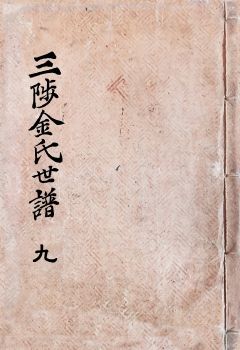 三陟金氏世譜 九